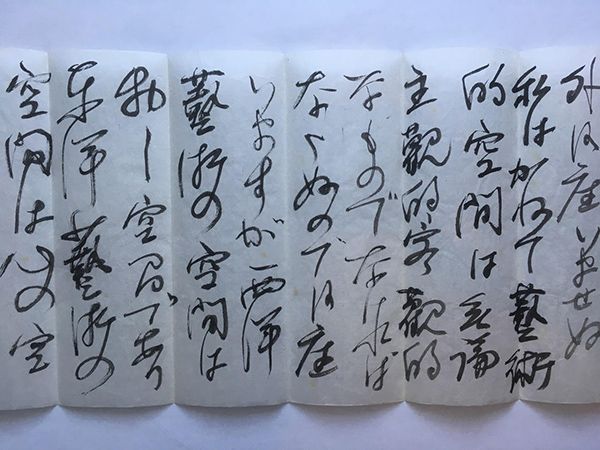 外御座いませぬ
私はかねて藝術
的空間は無論
主觀的客觀的
なものでなければ
ならぬので御座
いますが西洋
藝術の空間は
物の空間であり
東洋藝術の
空間は心の空